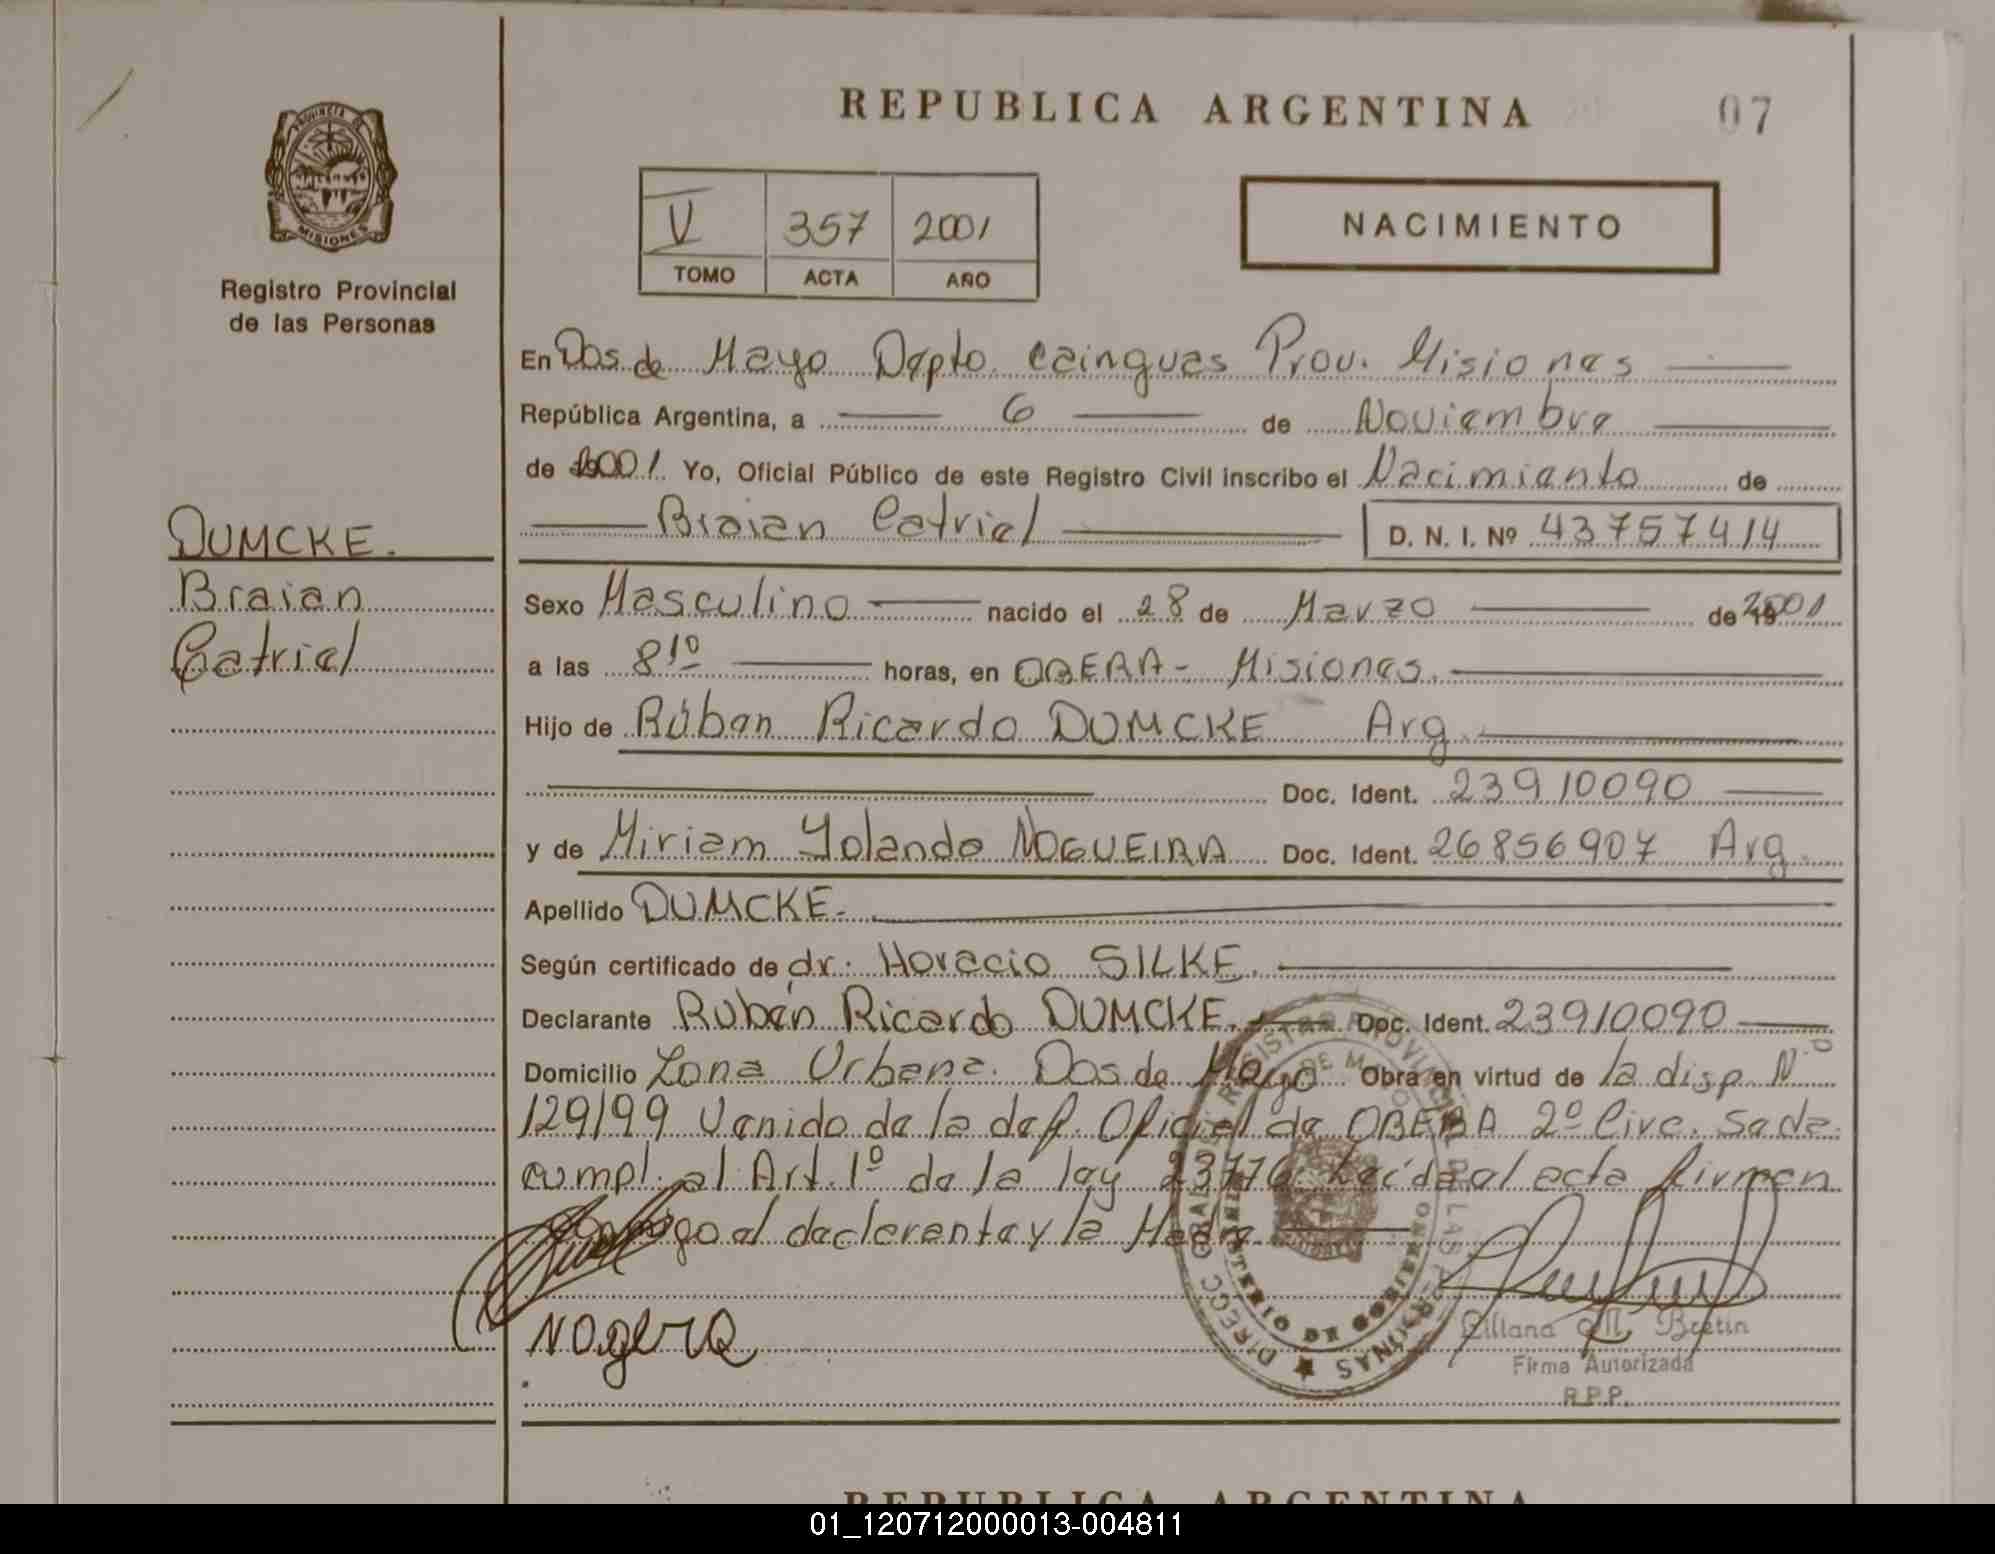 REPUBLICA ARGENTINA
07
PROVINCIA DE
MISIONES
Registro Provincial
de las Personas
V 357 2001
TOMO ACTA AÑO
NACIMIENTO
En Dos de Mayo Depto. Cainguas Prov. Misiones
República Argentina, a 6 de Noviembre
de 2001. Yo, Oficial Público de este Registro Civil inscribo el Nacimiento de
Braian Catriel D. N. I. Nº 43757414
DUMCKE.
Braian
Catriel
Sexo Masculino nacido el 28 de Marzo de 2001
a las 8 10 horas, en OBERA - Misiones.
Hijo de Rúben Ricardo DUMCKE Arg.
Doc. Ident. 23910090
y de Miriam Yolanda NOGUEIRA Doc. Ident. 26856907 Arg.
Apellido DUMCKE.
Según certificado de dr. Horacio SILKE.
Declarante Rubén Ricardo DUMCKE. Doc. Ident. 23910090
Domicilio Zona Urbana. Dos de Mayo Obra en virtud de la disp. Nº
129/99 Venido de la def. Oficial de OBERA 2º Circ. se da
cumpl. al Art. 1º de la ley 23776. Leída el acta firman
conmigo el declarante y la Madre
Nogera
DIRECC. GRAL. DEL REGISTRO PROVINCIAL DE LAS PERSONAS
MINISTERIO DE GOBIERNO
DOS DE MAYO
MISIONES
Liliana M. Bretin
Firma Autorizada
R.P.P.
REPUBLICA ARGENTINA
01_120712000013-004811